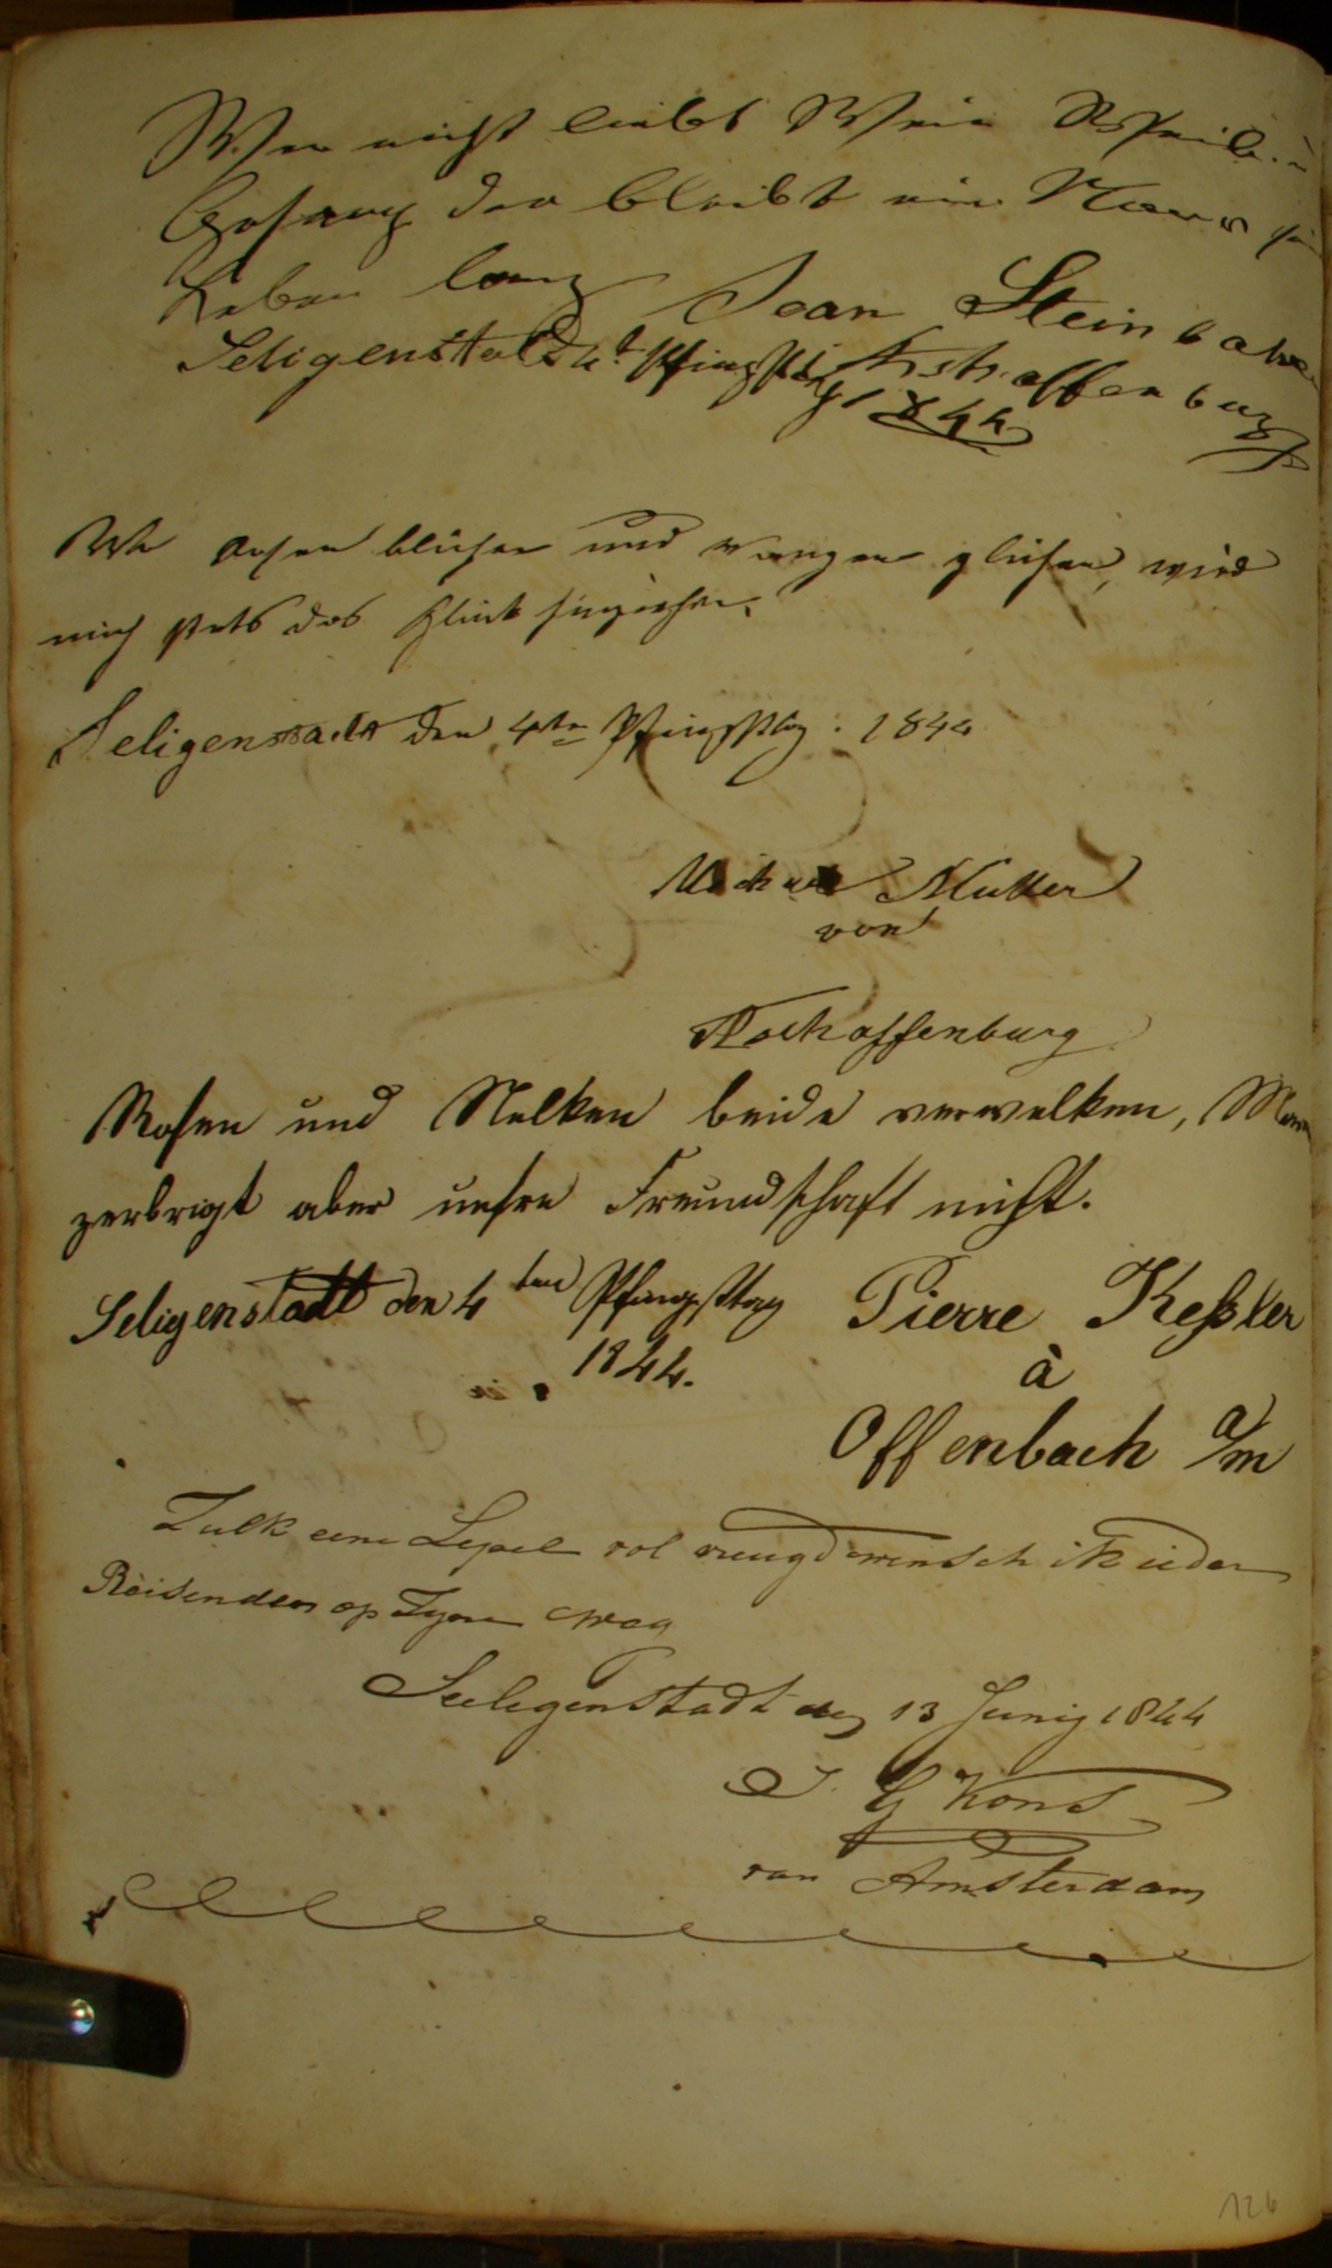 Wer nicht liebt Wein Weib u
Gesang der bleibt ein Narr sein
Leben lang Jean Stein
Seligenstadt 4t Pfingsttag Aschaffenburg
1844
Wo Rosen blühen und Wangen glühen, wird
mich stets das Glück hinziehen.
Seligenstadt den 4ten Pfingsttag. 1844
Müller
von
Aschaffenburg
Rosen und Nelken beide verwelken, Mann
zerbrigt aber unsre Freundschaft nicht.
Seligenstadt den 4ten Pfingsttag Pierre Keßler
1844. à
Offenbach a/m
Zulk een Lepel vol vreugd wensch ik ieder
Reisenden op Zyne weg
Seelegenstadt den 13 Junij 1844
J. G Kons
van Amsterdam
126